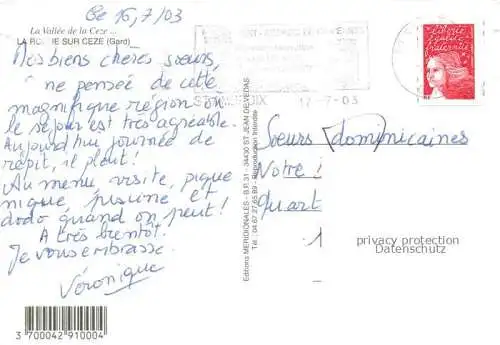 Le 16/7/03
La Vallée de la Ceze ...
LA ROQUE SUR CEZE (Gard)
Mes biens chères sœurs,
ne pensée de cette
magnifique région où
le séjour est très agréable.
Aujourd'hui journée de
répit, il pleut!
Au menu visite, pique
nique, piscine et
dodo quand on peut!
A très bientôt.
Je vous embrasse.
Véronique
3 700042 910004
17-7-03
Editions MERIDIONALES - B.P. 31 - 34430 ST JEAN DE VEDAS
Tél : 04 67 27 65 89 - Reproduction Interdite
liberté
égalité
fraternité
Sœurs dominicaines
Notre
quart
1
privacy protection
Datenschutz